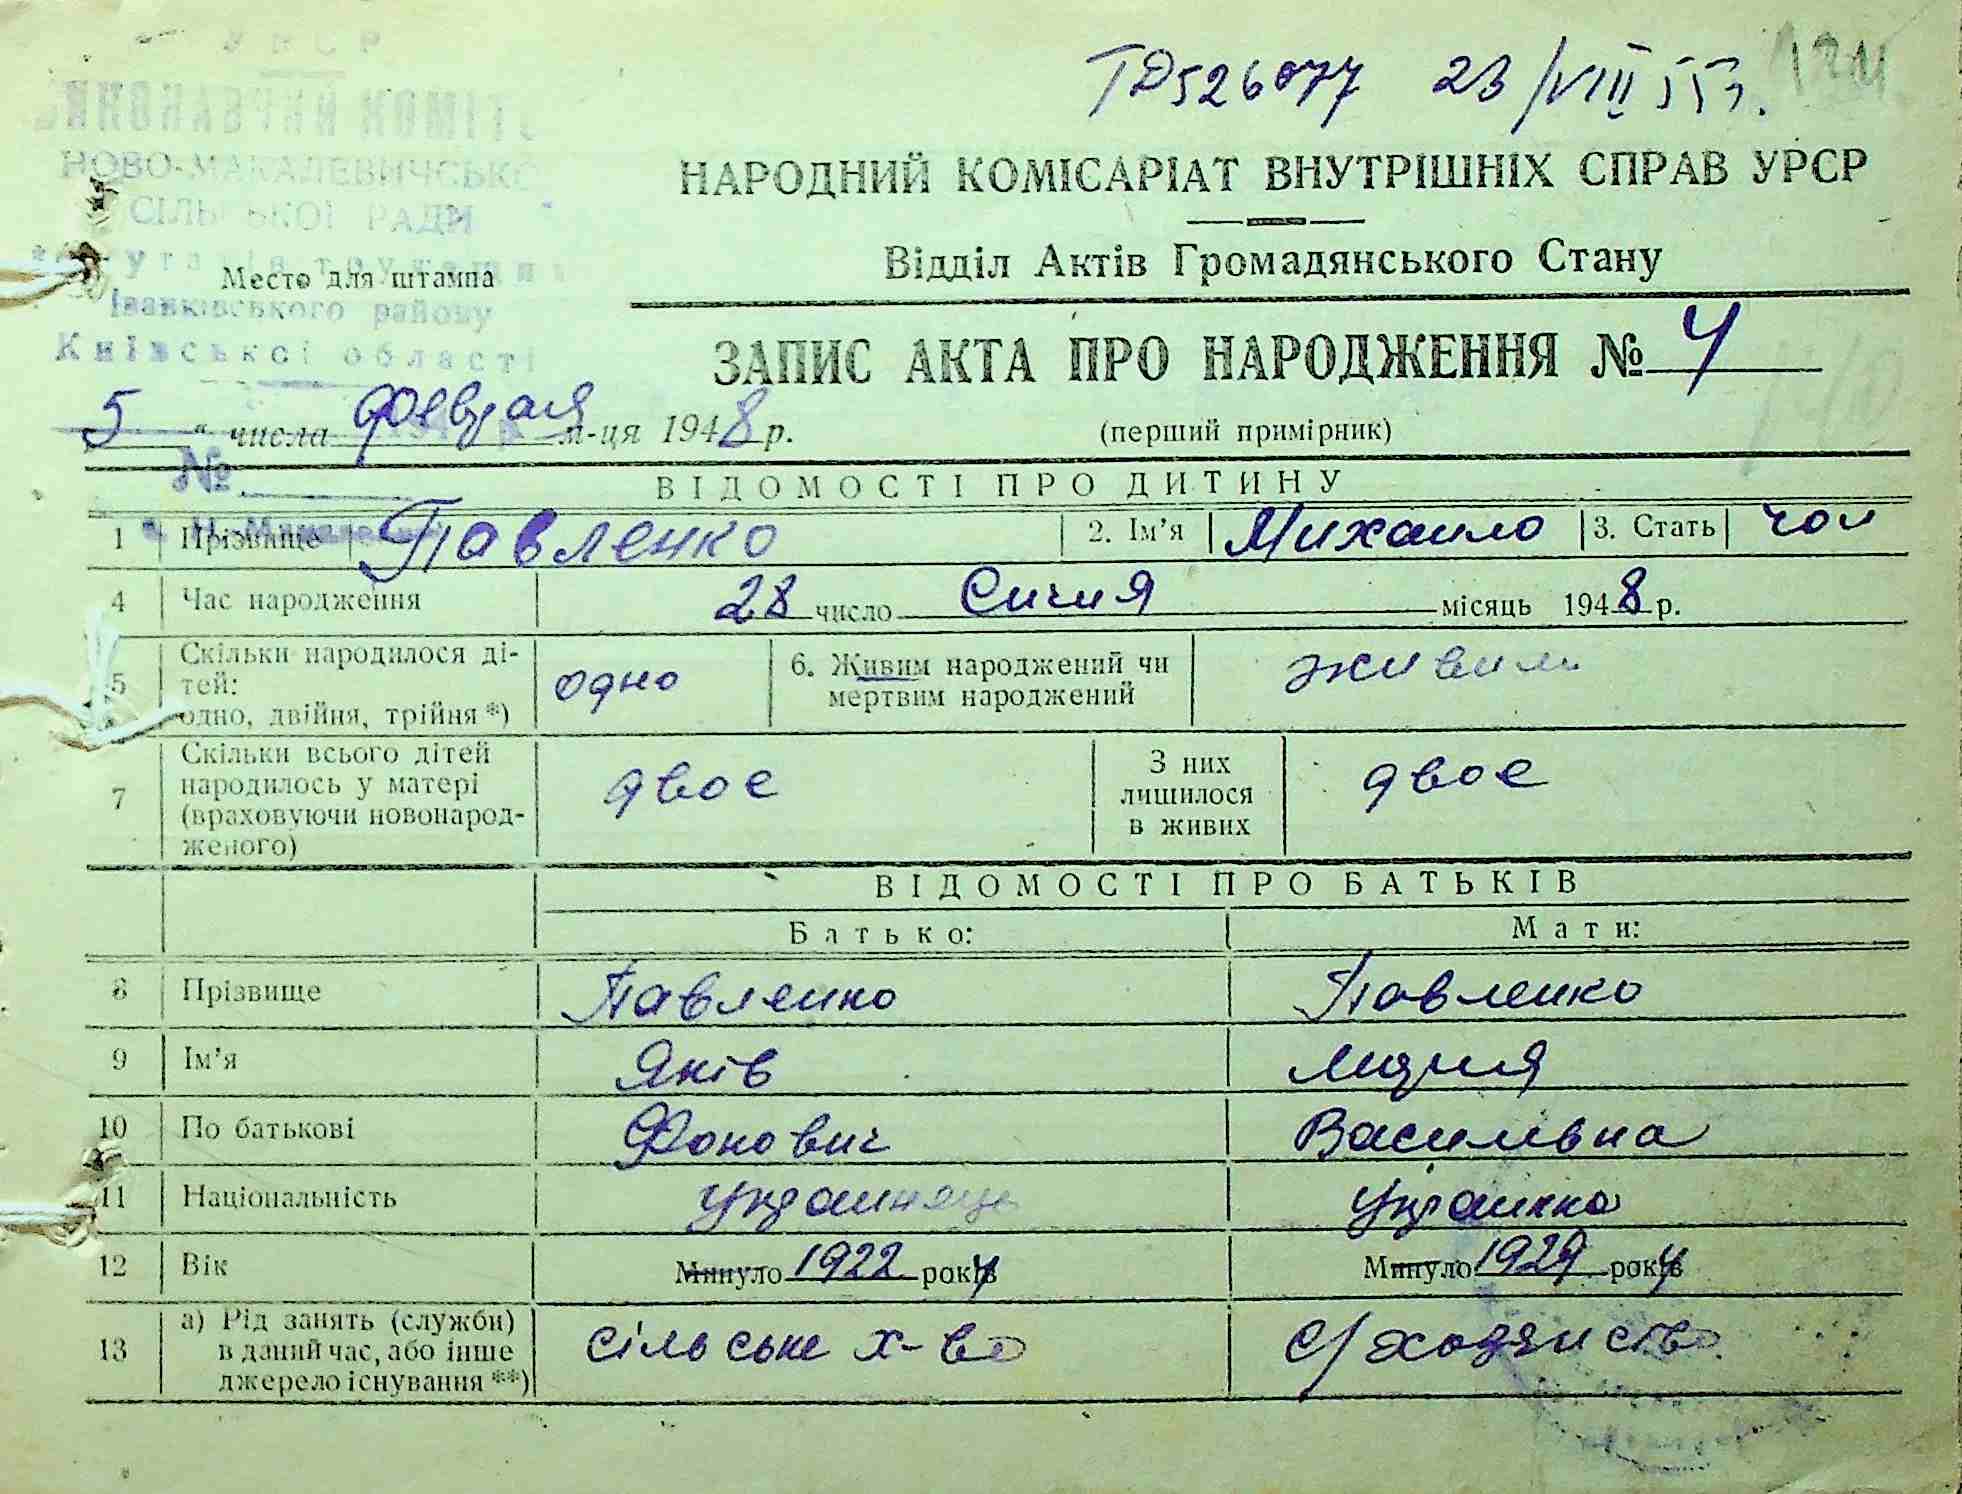 УРСР
ВИКОНАВЧИЙ КОМІТЕТ
НОВО-МАКАЛЕВИЧСЬКОЇ
СІЛЬСЬКОЇ РАДИ
депутатів трудящих
Іванківського району
Київської області
№
Место для штампа
ТД526077 23/VIII 55г.
124
НАРОДНИЙ КОМІСАРІАТ ВНУТРІШНІХ СПРАВ УРСР
Відділ Актів Громадянського Стану
ЗАПИС АКТА ПРО НАРОДЖЕННЯ № 4
5 " числа февраля м-ця 1948 р.
(перший примірник)
ВІДОМОСТІ ПРО ДИТИНУ
1 Прізвище Павленко 2. Ім'я Михаило 3. Стать чол
4 Час народження 28 число Сичня місяць 1948 р.
5 Скільки народилося ді-
тей:
одно, двійня, трійня *) одно
6. Живим народжений чи
мертвим народжений живим
7 Скільки всього дітей
народилось у матері
(враховуючи новонарод-
женого) двоє
З них
лишилося
в живих двоє
ВІДОМОСТІ ПРО БАТЬКІВ
Батько: Мати:
8 Прізвище Павленко Павленко
9 Ім'я Яків Мария
10 По батькові Фонович Василівна
11 Національність украинець украинка
12 Вік Минуло 1922 року Минуло 1929 року
13 а) Рід занять (служби)
в даний час, або інше
джерело існування **) сільське х-во с/хозяиство